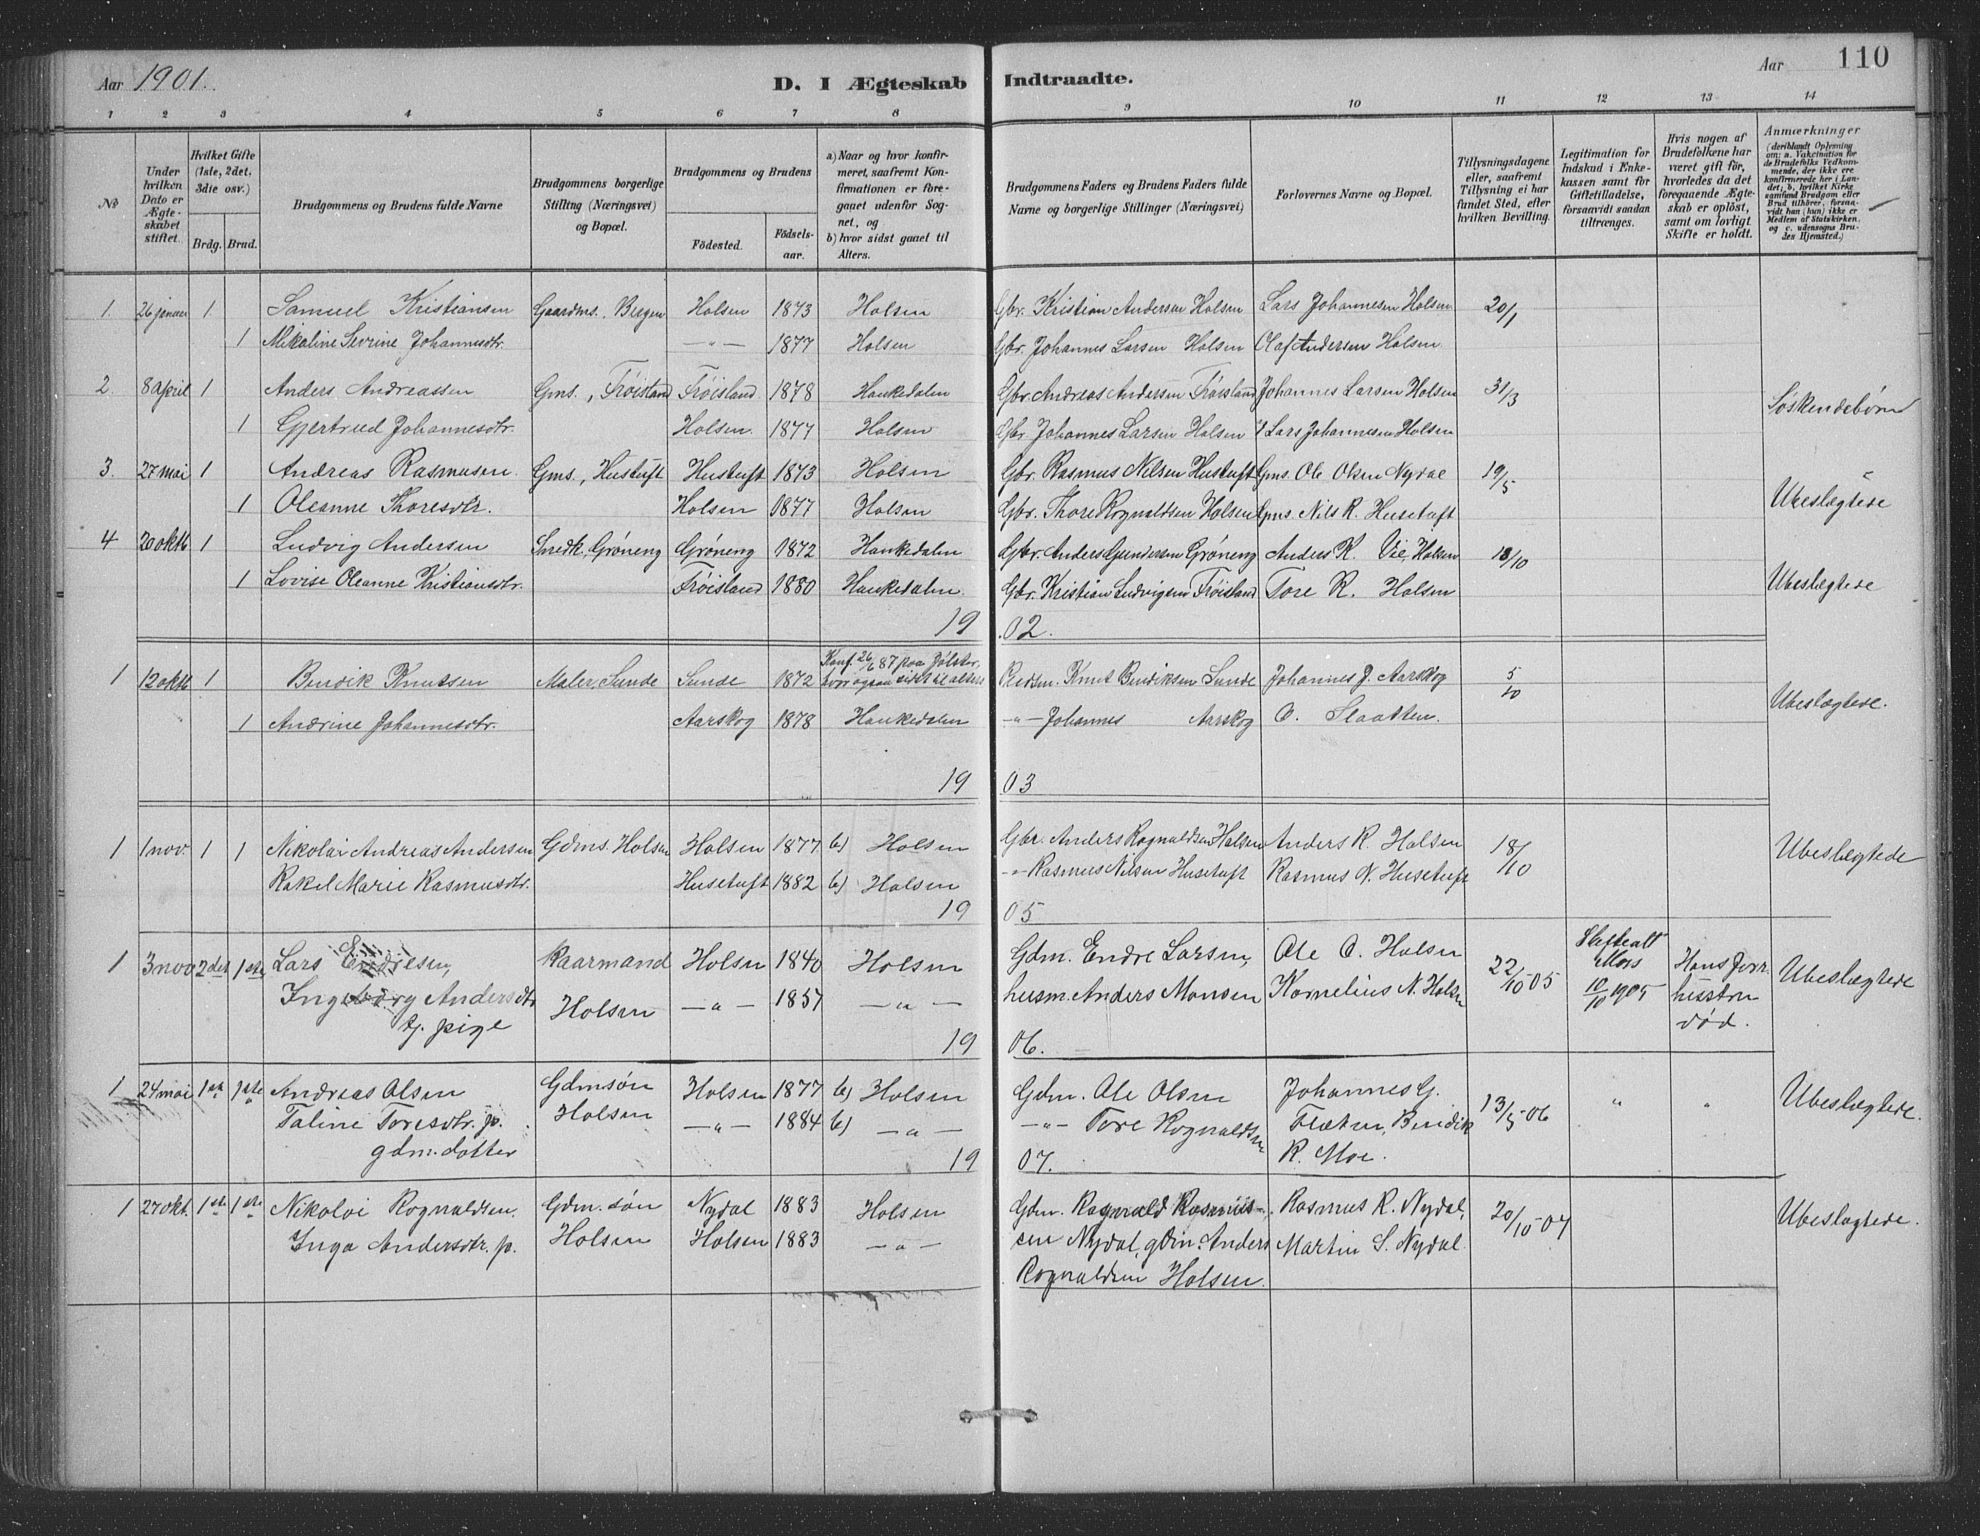 Aar 1901. D. I Ægteskab Indtraadte. Aar 110
1 2 3 4 5 6 7 8 9 10 11 12 13 14
No
Under hvilken Dato er Ægteskabet stiftet.
Hvilket Gifte (1ste, 2det, 3die osv.)
Brdg. Brud.
Brudgommens og Brudens fulde Navne
Brudgommens borgerlige Stilling (Næringsvei) og Bopæl.
Brudgommens og Brudens
Födested. Födselsaar.
a) Naar og hvor konfirmeret, saafremt Konfirmationen er foregaaet udenfor Sognet, og
b) hvor sidst gaaet til Alters.
Brudgommens Faders og Brudens Faders fulde Navne og borgerlige Stillinger (Næringsvei)
Forlovernes Navne og Bopæl.
Tillysningsdagene eller, saafremt Tillysning ei har fundet Sted, efter hvilken Bevilling.
Legitimation for Indskud i Enkekassen samt for Giftetilladelse, forsaavidt saadan tiltrænges.
Hvis nogen af Brudefolkene har været gift för, hvorledes da det foregaaende Ægteskab er oplöst, samt om lovligt Skifte er holdt.
Anmærkninger (deriblandt Oplysning om: a. Vakcination for de Brudefolks Vedkommende, der ikke ere konfirmerede her i Landet; b. hvilket Kirkesamfund Brudgom eller Brud tilhörer, forsaavidt han (hun) ikke er Medlem af Statskirken, og c. udensogns Brudes Hjemsted.)
1. 26 januar 1 Samuel Kristiansen Gaardms., Bergen Holsen 1873 Holsen Gbr. Kristian Andersen Holsen Lars Johannesen Holsen 20/1
1 Mikaline Sevrine Johannesdtr. -"- 1877 Holsen Gbr. Johannes Larsen Holsen Olaf Andersen Holsen
2. 8 april 1 Anders Andreassen Gms., Tröisland Tröisland 1878 Haukedalen Gbr. Andreas Andersen Tröisland Johannes Larsen Holsen 31/3 Söskendebörn
1 Gjertrud Johannesdtr. Holsen. 1877 Holsen Gbr. Johannes Larsen Holsen Lars Johannesen Holsen
3. 27 mai 1 Andreas Rasmusen Gms., Hustuft Hustuft 1873 Holsen Gbr. Rasmus Nilsen Hustuft Gms. Ole Olsen Nydal 19/5 Ubeslægtede
1 Oleanne Thoresdtr. Holsen 1877 Holsen Gbr. Thore Rognaldsen Holsen Gms. Nils R. Husetuft
4 20 oktb 1 Ludvig Andersen Snedk., Gröneng Gröneng 1872 Haukedalen Gbr. Anders Gundersen Gröneng Anders R. Vie, Holsen 13/10 Ubeslægtede
1 Lovise Oleanne Kristiansdtr. Tröisland 1880 Haukedalen. Gbr. Kristian Ludvigsen Tröisland Tore R. Holsen
1902.
1 12 oktb 1 Bendik Knutsen Maler, Sunde Sunde 1872 Konf. 26/6 87 paa Jölster, hvor ogsaa sidst til alters Knut Bendiksen Sunde Johannes J. Aarskog 5/10 Ubeslægtede.
1 Andrine Johannesdtr. Aarskog 1878 Haukedalen -"- Johannes Aarskog O. Slaatten.
1903
1 1 nov. 1 1 Nikolai Andreas Andersen Gdms. Holsen Holsen 1877 b) Holsen Gbr. Anders Rognaldsen Holsen Anders R. Holsen 18/10 Ubeslægtede
Rakel Marie Rasmusdtr. Husetuft 1882 b) Holsen -"- Rasmus Nilsen Husetuft Rasmus N. Husetuft
1905
1 3 nov 2det 1ste Lars Endresen, Kaarmand Holsen 1840 Holsen Gdm. Endre Larsen, Ole O. Holsen 22/10 05 Skifteatt Moss 10/10 1905 Hans forr. husstru död. Ubeslægtede
Ingeborg Andersdtr Holsen -"- 1857 -"- husm. Anders Monsen Kornelius N. Holsen
G. pige
1906.
1 24 mai 1ste 1ste Andreas Olsen Gdmsön Holsen 1877 b) Holsen Gdm. Ole Olsen Johannes G. 13/5 06 " " Ubeslægtede.
Taline Toresdtr. p. Holsen -"- 1884 b) -"- -"- Tore Rognaldsen Flæten, Bendik
gdm.dotter R. Moe.
1907.
1 27 okt. 1ste 1ste Nikolai Rognaldsen. Gdm.sön Nydal 1883 Holsen Gdm. Rognald Rasmus- Rasmus R. Nydal, 20/10 07 Ubeslægtede.
Inga Andersdtr. p. Holsen Holsen 1883 -"- sen Nydal, gdm. Anders Martin S. Nydal
Rognaldsen Holsen.